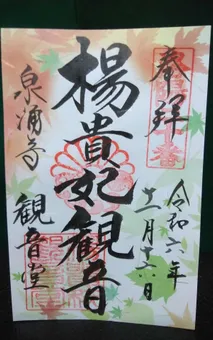 奉拝
令和六年
十一月十六日
楊貴妃観音
泉涌寺
観音堂